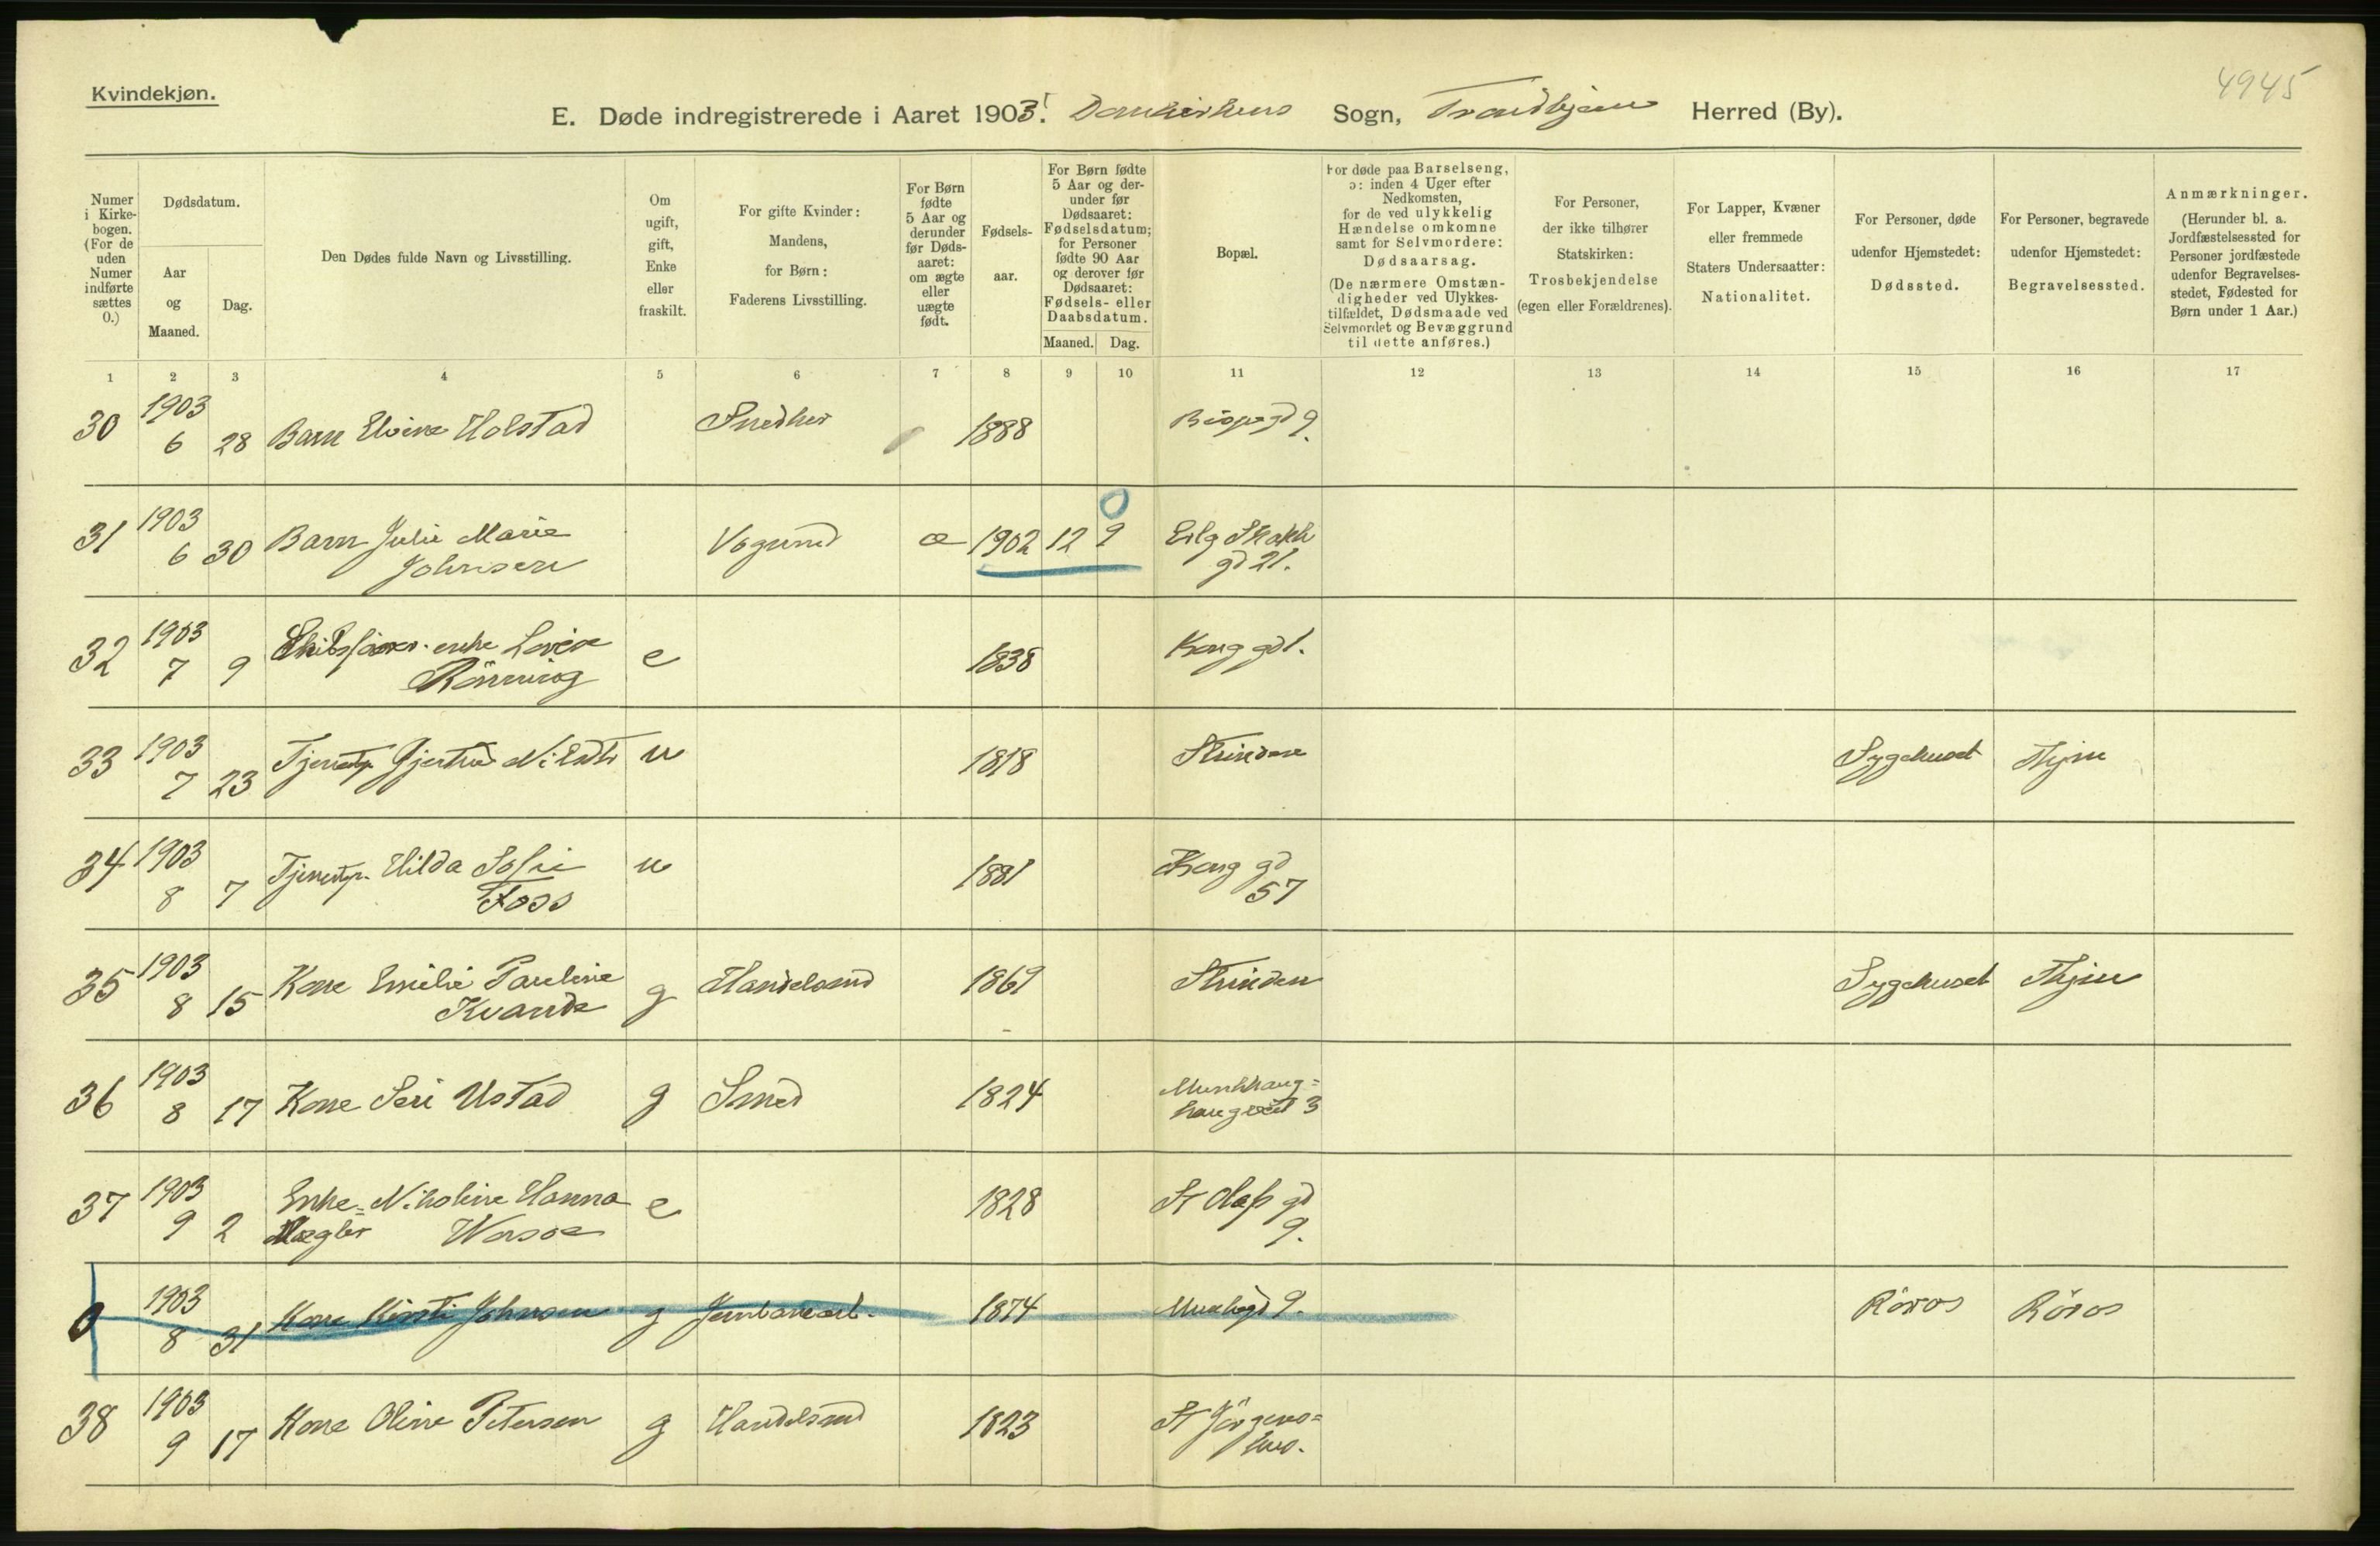 4945
Kvindekjøn.
E. Døde indregistrerede i Aaret 1903. Domkirkens Sogn, Trondhjem Herred (By).
Numer i Kirkebogen. (For de uden Numer indførte sættes 0.)
Dødsdatum.
Aar og Maaned.
Dag.
Den Dødes fulde Navn og Livsstilling.
Om ugift, gift, Enke eller fraskilt.
For gifte Kvinder: Mandens, for Børn: Faderens Livsstilling.
For Børn fødte 5 Aar og derunder før Dødsaaret: om ægte eller uægte født.
Fødselsaar.
For Børn fødte 5 Aar og derunder før Dødsaaret: Fødselsdatum; for Personer fødte 90 Aar og derover før Dødsaaret: Fødsels- eller Daabsdatum.
Maaned. Dag.
Bopæl.
For døde paa Barselseng, ɔ: inden 4 Uger efter Nedkomsten, for de ved ulykkelig Hændelse omkomne samt for Selvmordere: Dødsaarsag.
(De nærmere Omstændigheder ved Ulykkestilfældet, Dødsmaade ved Selvmordet og Bevæggrund til dette anføres.)
For Personer, der ikke tilhører Statskirken: Trosbekjendelse (egen eller Forældrenes).
For Lapper, Kvæner eller fremmede Staters Undersaatter: Nationalitet.
For Personer, døde udenfor Hjemstedet: Dødssted.
For Personer, begravede udenfor Hjemstedet: Begravelsessted.
Anmærkninger.
(Herunder bl. a. Jordfæstelsessted for Personer jordfæstede udenfor Begravelsesstedet, Fødested for Børn under 1 Aar.)
1 2 3 4 5 6 7 8 9 10 11 12 13 14 15 16 17
30 1903 6 28 Barn Elvine Holstad Snedker 1888 Bispegd 9.
31 1903 6 30 Barn Julie Marie Johnsen Vognmd æ 1902 12 9 0 gd 21.
32 1903 7 9 enke Lovise Rönning e 1838 Kong gd 1.
33 1903 7 23 Tjenestp. Gjertrud u 1818 Strinden Sygehuset Thjm
34 1903 8 7 Tjenestp. Hilda Sofie Foss u 1881 Kong gd 57
35 1903 8 15 Kone Emilie Pauline Kvande g Handelsmd 1869 Strinden Sygehuset Thjm
36 1903 8 17 Kone Seri Ustad g Smed 1824 3
37 1903 9 2 Enke Nikoline Hanna Mægler Worsøe e 1828 St Olafs gd 9.
0 1903 8 31 Kone Kirsti Johnsen g Jernbanearb. 1874 Munkegd 9. Röros Röros
38 1903 9 17 Kone Oline Petersen g Handelsmd 1823 St Jörgens= hus.